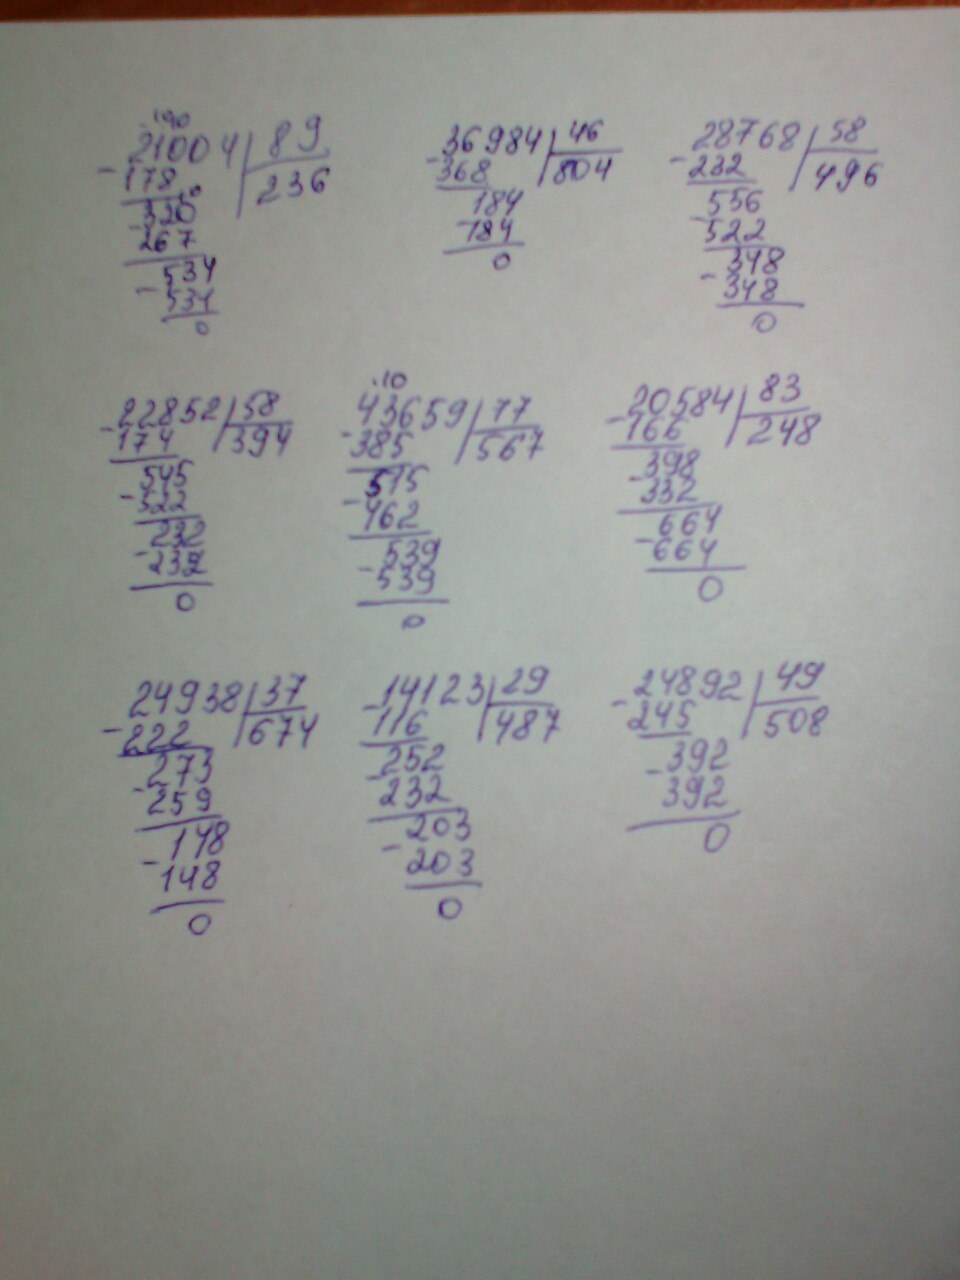 21004 | 89
- 178 | 236
- 320
267
- 534
534
0
36984 | 46
- 368 | 804
- 184
184
0
28768 | 58
- 232 | 496
- 556
522
- 348
348
0
22852 | 58
- 174 | 394
- 545
522
- 232
232
0
.10
43659 | 77
- 385 | 567
- 515
462
- 539
539
0
20584 | 83
- 166 | 248
- 398
332
- 664
664
0
24938 | 37
- 222 | 674
- 273
259
- 148
148
0
14123 | 29
- 116 | 487
- 252
232
- 203
203
0
24892 | 49
- 245 | 508
- 392
392
0